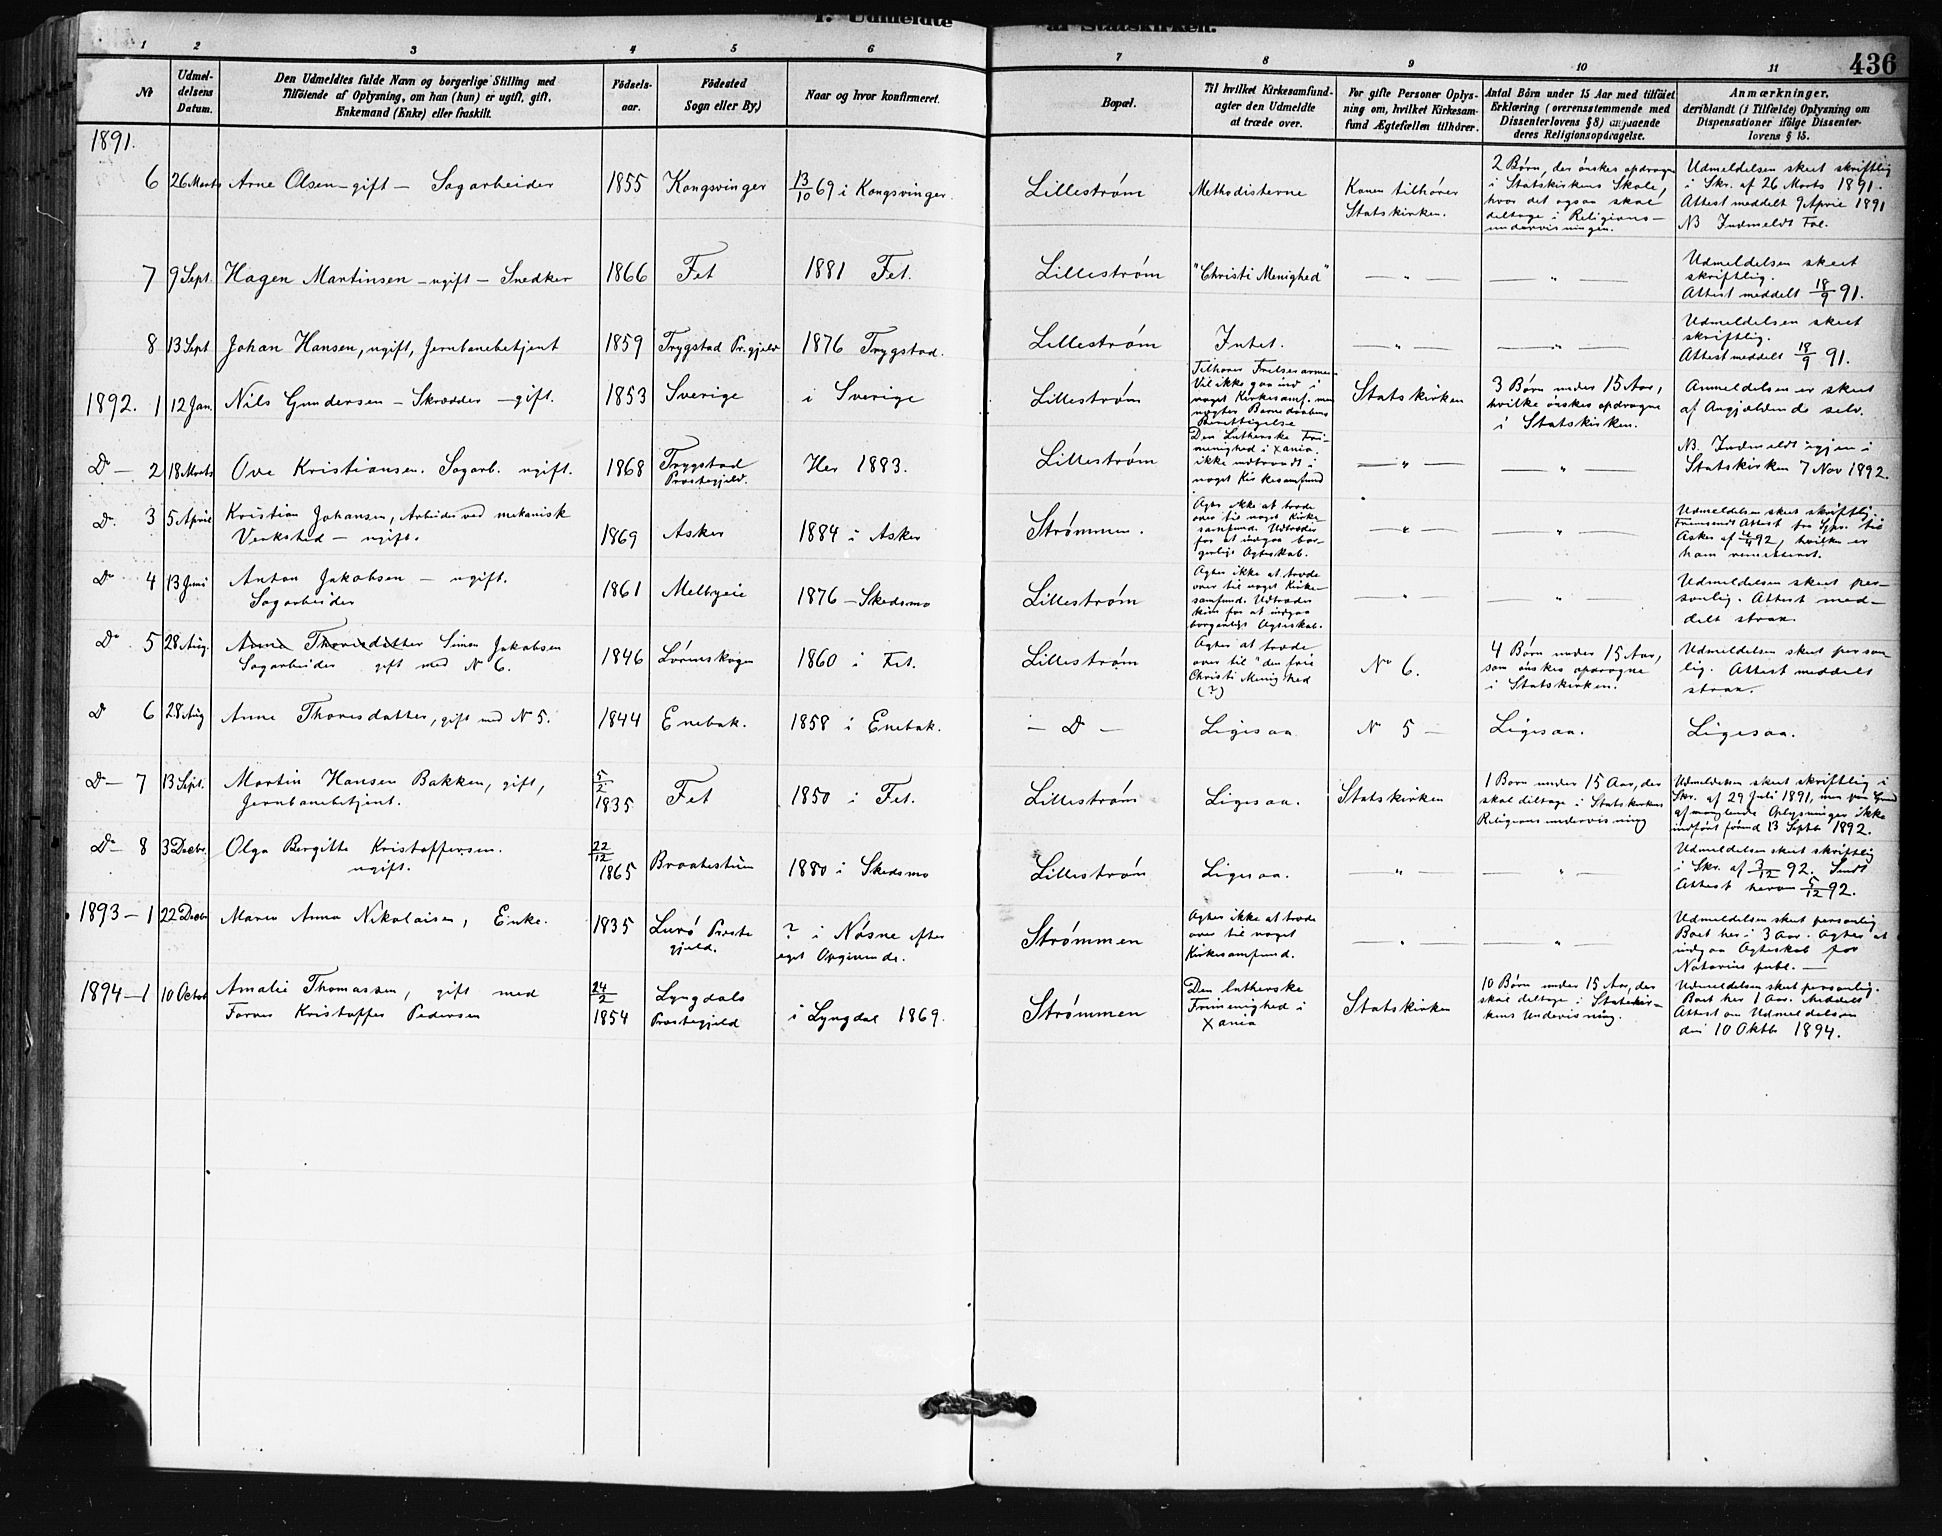 F. Udmeldte af Statskirken.
436
1 2 3 4 5 6 7 8 9 10 11
No
Udmel-
delsens
Datum.
Den Udmeldtes fulde Navn og borgerlige Stilling med
Tilføiende af Oplysning, om han (hun) er ugift, gift,
Enkemand (Enke) eller fraskilt.
Fødsels-
aar.
Fødested
Sogn eller By.)
Naar og hvor konfirmeret.
Bopæl.
Til hvilket Kirkesamfund
agter den Udmeldte
at træde over.
For gifte Personer Oplys-
ning om, hvilket Kirkesam-
fund Ægtefællen tilhører.
Antal Børn under 15 Aar med tilføiet
Erklæring (overensstemmende med
Dissenterlovens § 8) angaaende
deres Religionsopdragelse.
Anmærkninger,
deriblandt (i Tilfælde) Oplysning om
Dispensationer ifølge Dissenter-
lovens § 15.
1891.
6 26 Marts Arne Olsen – gift – Sagarbeider 1855 Kongsvinger 13/10 69 i Kongsvinger. Lillestrøm Methodisterne
Konen tilhører
Statskirken.
2 Børn, der ønskes opdragne
i Statskirkens Skole,
hvor det ogsaa skal
deltage i Religions-
undervisningen.
Udmeldelsen skeet skriftlig
i Skr. af 26 Marts 1891.
Attest meddelt 9 April 1891
NB Indmeldt Fol.
7 9 Sept. Hagen Martinsen – ugift – Snedker 1866 Fet 1881 Fet. Lillestrøm "Christi Menighed" — " — — " —
Udmeldelsen skeet
skriftlig.
Attest meddelt 18/9 91.
8 13 Sept Johan Hansen, ugift, Jernbanebetjent 1859 Trygstad Pr.gjeld 1876 Trygstad. Lillestrøm Intet. — " — — " —
Udmeldelsen skeet
skriftlig.
Attest meddelt 18/9 91.
1892. 1 12 Jan. Nils Gundersen – Skrædder – gift. 1853 Sverige i Sverige Lillestrøm
Tilhører Frelsesarmeen
Vil ikke gaa ind i
noget Kirkesamf. men
nægter Barnedaabens
Berettigelse
Statskirken
3 Børn under 15 Aar,
hvilke ønskes opdragne
i Statskirken.
Anmeldelsen er skeet
af Angjældende selv.
Do – 2 18 Marts Ove Kristiansen. Sagarb. ugift. 1868 Trygstad
Præstegjeld.
Her 1883. Lillestrøm
Den Lutherske Fri-
menighed i Xania.
ikke indtraadt i
noget Kirkesamfund
— " — — " —
NB. Indmeldt igjen i
Statskirken 7 Nov 1892.
Do. 3 5 April Kristian Johansen, Arbeider ved mekanisk
Verksted – ugift.
1869 Asker 1884 i Asker Strømmen.
Agter ikke at træde
over til noget Kirke-
samfund. Udtræder
for at indgaa bor-
gerligt Ægteskab.
— " — — " —
Udmeldelsen skeet skriftlig.
Fremsendt Attest fra Spr. til
Asker af 92, hvilken er
ham remitteret.
Do 4 13 Juni Anton Jakobsen – ugift.
Sagarbeider
1861 Melbyeie 1876 – Skedsmo Lillestrøm
Agter ikke at træde
over til noget Kirke-
samfund. Udtræder
kun for at indgaa
borgerligt Ægteskab.
— " — — " —
Udmeldelsen skeet per-
sonlig. Attest med-
delt strax.
Do 5 28 Aug. Anne Thoresdatter Simen Jakobsen
Sagarbeider gift med No 6.
1846 Lørenskogen 1860 i Fet. Lillestrøm
Agter at træde
over til "den frie
Christi Menighed
(?)
No 6.
4 Børn under 15 Aar,
som ønskes opdragne
i Statskirken.
Udmeldelsen skeet person-
lig. Attest meddelt
strax.
D 6 28 Aug Anne Thoresdatter, gift med No 5. 1844 Enebak. 1858 i Enebak. – D – Ligesaa No 5 – Ligesaa. Ligesaa.
D – 7 13 Sept. Martin Hansen Bakken, gift,
Jernbanebetjent.
5/2
1835
Fet 1850 i Fet. Lillestrøm Ligesaa. Statskirken
1 Barn under 15 Aar, der
skal deltage i Statskirkens
Religionsundervisning
Udmeldelsen skeet skriftlig i
Skr. af 29 Juli 1891, men paa Grund
af manglende Oplysninger ikke
indført førend 13 Septb 1892.
Do – 8 3 Decbr. Olga Bergitte Kristoffersen.
ugift.
22/12
1865
Braatestuen 1880 i Skedsmo Lillestrøm Ligesaa. — " — — " —
Udmeldelsen skeet skriftlig
i Skr. af 3/12 92. Sendt
Attest herom 5/12 92.
1893 – 1 22 Decbr Maren Anna Nikolaisen, Enke. 1835 Lurø Præste
gjeld.
? i Næsne efter
eget Opgivende.
Strømmen
Agter ikke at træde
over til noget
Kirkesamfund.
— " — — " —
Udmeldelsen skeet personlig
Boet her i 3 Aar. Agter at
indgaa Ægteskab for
Notarius publ. —
1894 – 1 10 Octob Amalie Thomassen, gift med
Farver Kristoffer Pedersen
24/2
1854
Lyngdals
Præstegjeld
i Lyngdal 1869. Strømmen
Den lutherske
Frimenighed i
Xania
Statskirken
10 Børn under 15 Aar, der
skal deltage i Statskir-
kens Undervisning.
Udmeldelsen skeet personlig.
Boet her 1 Aar. Meddelt
Attest om Udmeldelsen
den 10 Oktb 1894.